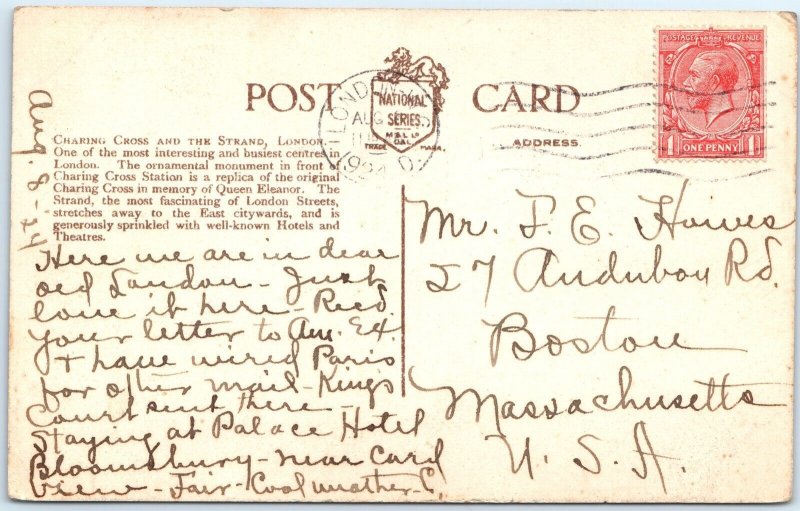 POST CARD
NATIONAL
SERIES.
M & L Ld
TRADE MARK.
ADDRESS.
LONDON
AUG
POSTAGE REVENUE
1 ONE PENNY 1
Aug. 8-24
CHARING CROSS AND THE STRAND, LONDON.
One of the most interesting and busiest centres in
London. The ornamental monument in front of
Charing Cross Station is a replica of the original
Charing Cross in memory of Queen Eleanor. The
Strand, the most fascinating of London Streets,
stretches away to the East citywards, and is
generously sprinkled with well-known Hotels and
Theatres.
Here we are in dear
old London - Just
love it here - Recd.
your letter to Am. Ex.
+ have wired Paris
for other mail - Kings
Court sent there
Staying at Palace Hotel
Bloomsbury - near Card
view - Fair - Cool weather - C.
Mr. F. E. Howes
27 Audubon Rd.
Boston
Massachusetts
U. S. A.